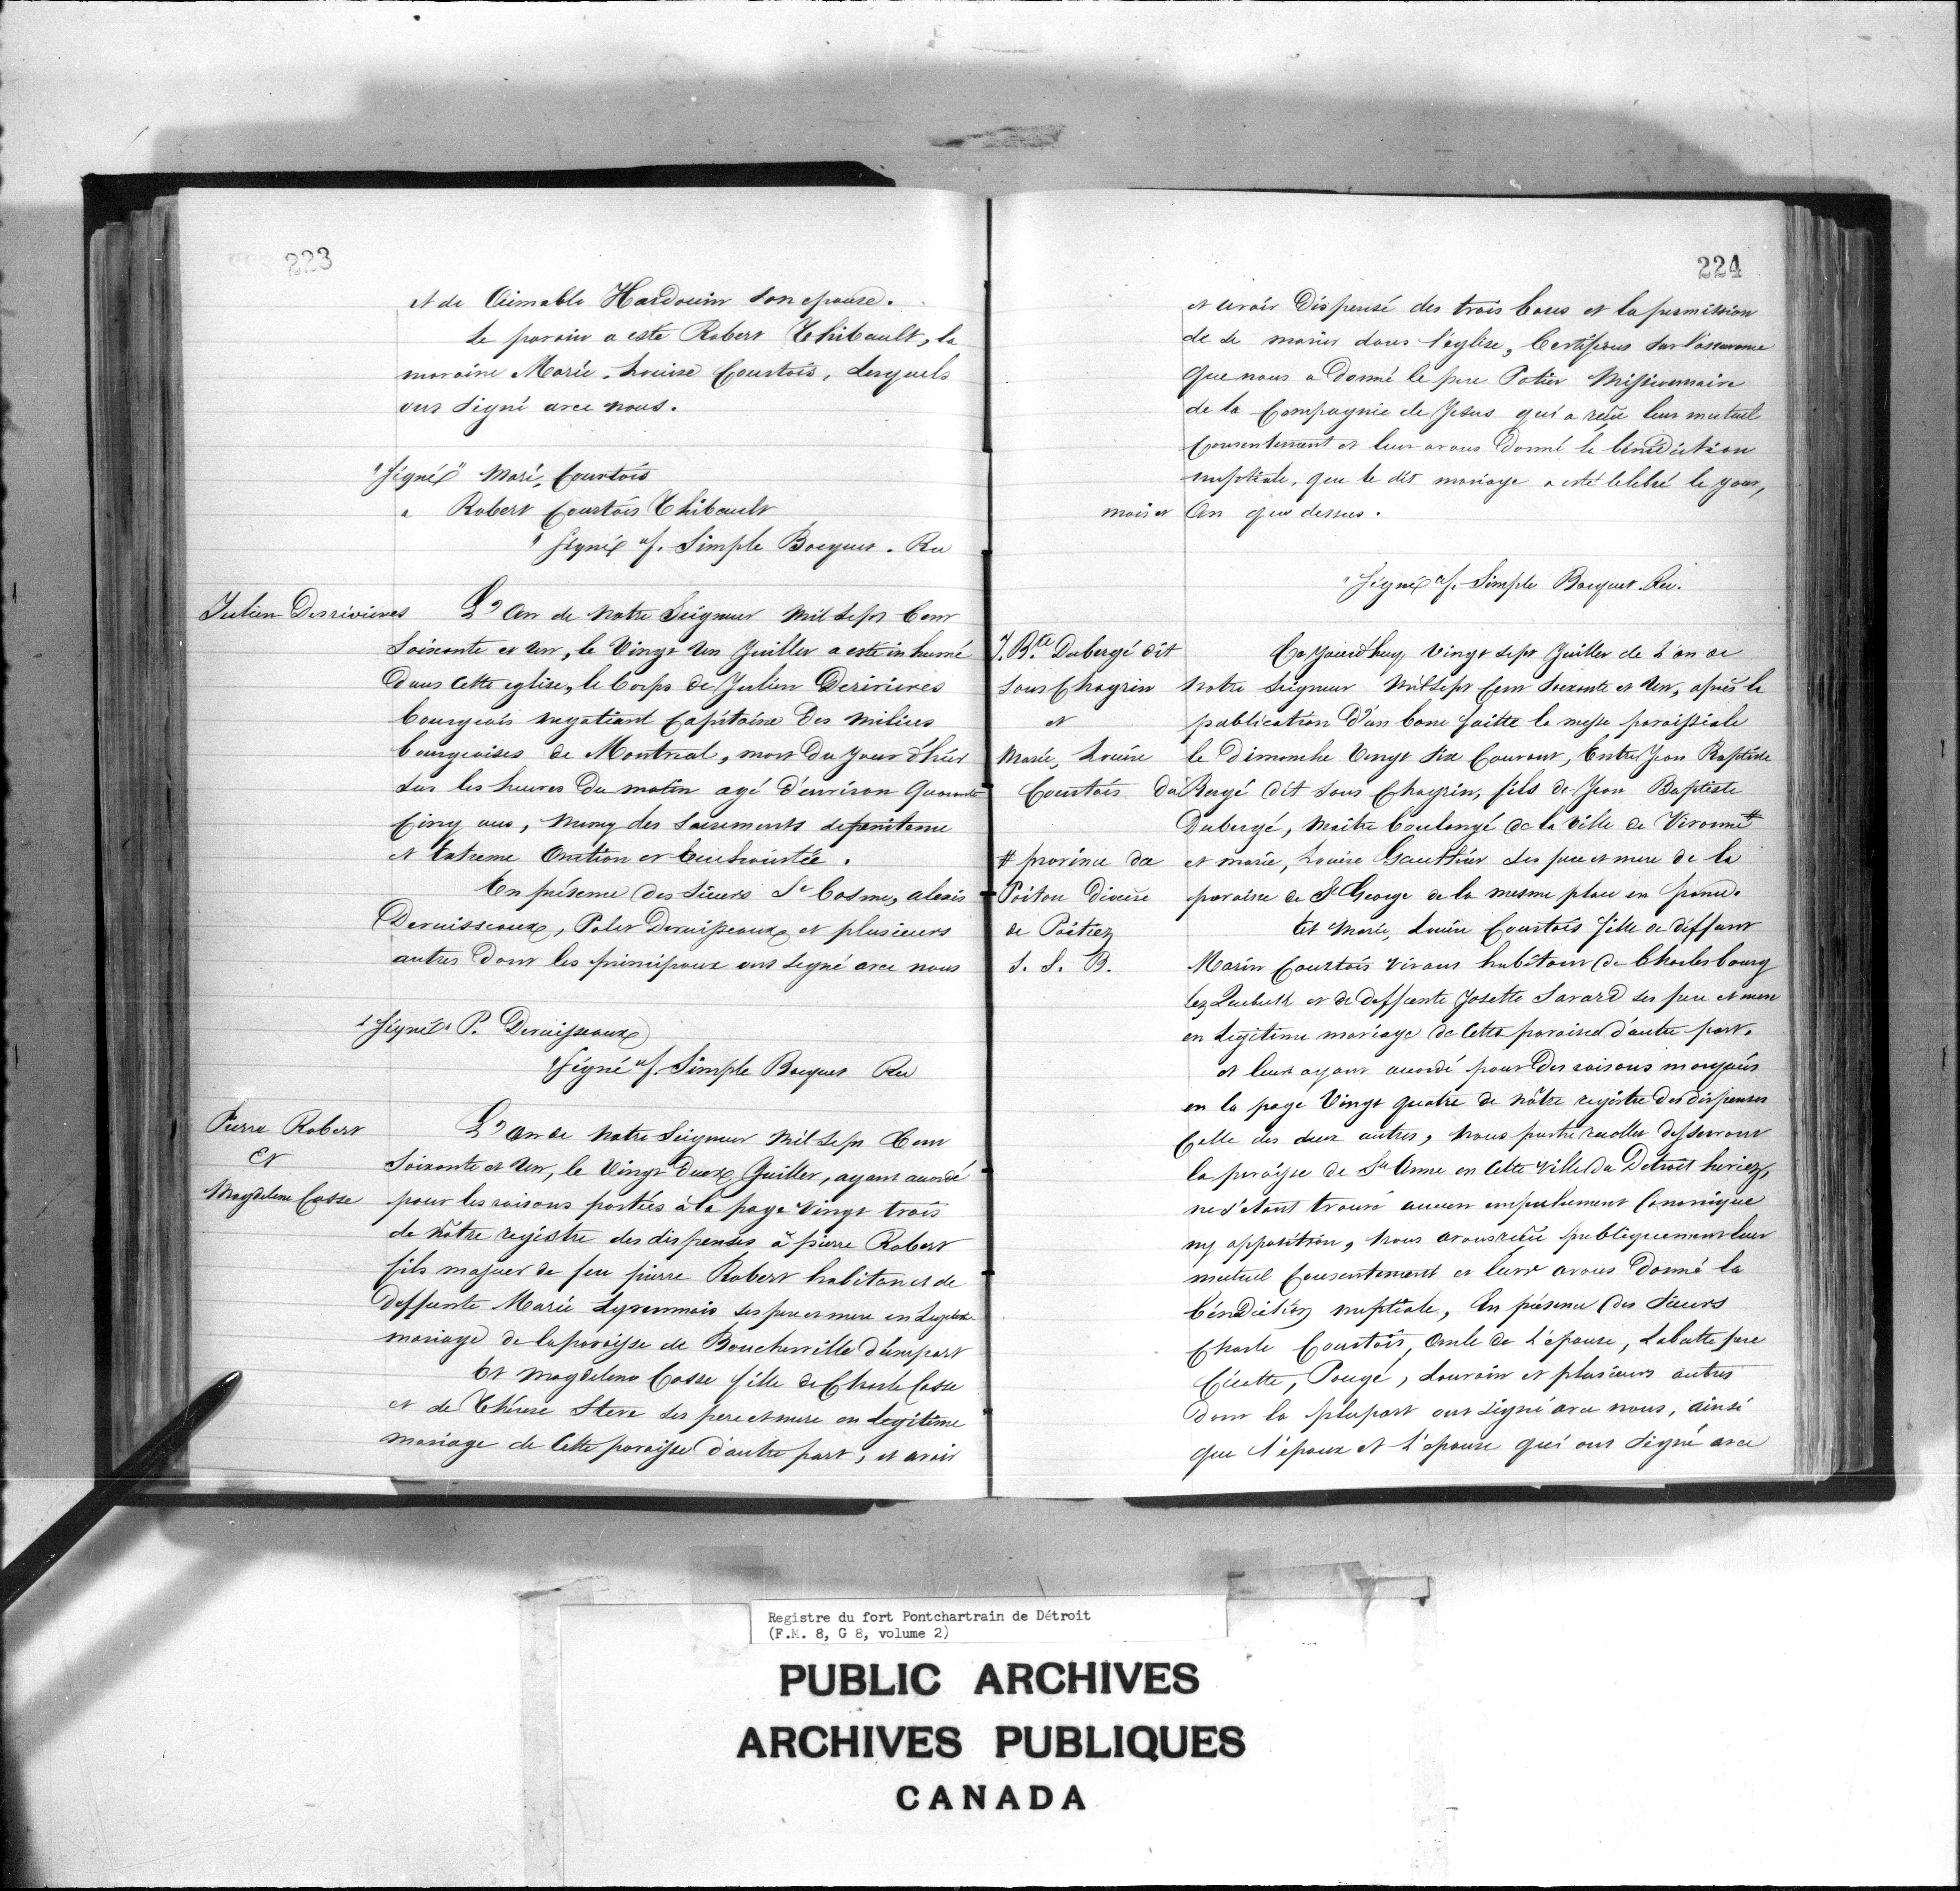 223
et de Aimable Hardouin son epouse.
Le parain a esté Robert Thibault, la
maraine Marie, Louise Courtois, Lesquels
ont signé avec nous.
"Signé" Mari, Courtois
" Robert Courtois Thibault
"Signé" f. Simple Bocquet. Rec
Julien Desrivieres
L'an de Notre Seigneur Mil Sept Cent
Soixante et Un, le Vingt Un Juillet a esté inhumé
Dans Cette eglise, le Corps de Julien Derivieres
bourgeois negotiant Capitaine Des milices
bourgeoises de Montreal, mort Du Jour d'hier
sur les heures Du matin agé d'environ Quarante
Cinq ans, muny des sacrements de penitence
et Extreme Onction
En présence des Sieurs St Cosme, alexis
Deruisseaux, Deruisseaux et plusieurs
autres Dont les principaux ont signé avec nous
"Signé" P. Deruisseaux
"Signé" f. Simple Bocquet Rec
Pierre Robert
Et
Magdelene Casse
L'an de Notre Seigneur Mil Sept Cent
Soixante et Un, le Vingt Deux Juillet, ayant accordé
pour les raisons portées à la page Vingt trois
de nôtre registre des dispenses à pierre Robert
fils majeur de feu pierre Robert habitant et de
Deffunte Marie ses pere et mere en Legitime
mariage de la paroisse de Boucherville d'une part
Et Magdelene Casse fille de Charle Casse
et de Thérese Steve ses pere et mere en Legitime
mariage de Cette paroisse d'autre part, et avoir
224
et avoir Dispensé des trois bans et la permission
de se marier dans l'église, Certifions sur l'assurance
Que nous a Donné le pere Potier Missionnaire
de la Compagnie de Jesus qui a reçu leur mutuel
Consentement et leur avons Donné la bénédiction
nuptiale, que le dit mariage a esté Celebré le jour,
mois et An que dessus.
"Signé" f. Simple Bocquet. Rec.
J. Bte Dubergé dit
sans Chagrin
et
Marie, Louise
Courtois
# province de
Poitou Diocèse
de Poitiez
S. S. B.
Ce Jourd'huy Vingt sept Juillet de L'an de
Notre Seigneur Mil Sept Cent Soixante et Un, après la
publication D'un banc faitte la messe paroissiale
le Dimanche Vingt Six Courant, Entre Jean Baptiste
Du Bergé dit sans Chagrin, fils de Jean Baptiste
Dubergé, Maître boulangé de la Ville de Vivonne#
et marie, Louise Gauthier ses pere et mere de la
paroisse de St George de la mesme place en
Et Marie, Louise Courtois fille de déffunt
Marin Courtois Vivant habitant de Charlesbourg
lez et de Deffunte Josette Savard ses pere et mere
en Legitime mariage de Cette paroisse d'autre part.
et leur ayant accordé pour Des raisons
en la page Vingt quatre de nôtre registre Des dispenses
Celle des deux autres, Nous prestre recollet desservant
la paroisse de Ste Anne en Cette Ville Du Detroit
ne s'etant trouvé aucun empechement Canonique
ny opposition, Nous avons reçu publiquement leur
mutuel Consentement et leur avons Donné la
bénédiction nuptiale, En présence des Sieurs
Charle Courtois, oncle de L'épouse, Labutte pere
Cicotte, Pougé, Louvain et plusieurs autres
Dont la plupart ont signé avec nous, ainsi
que l'époux et L'épouse qui ont signé avec
Registre du fort Pontchartrain de Détroit
(F.M. 8, G 8, volume 2)
PUBLIC ARCHIVES
ARCHIVES PUBLIQUES
CANADA